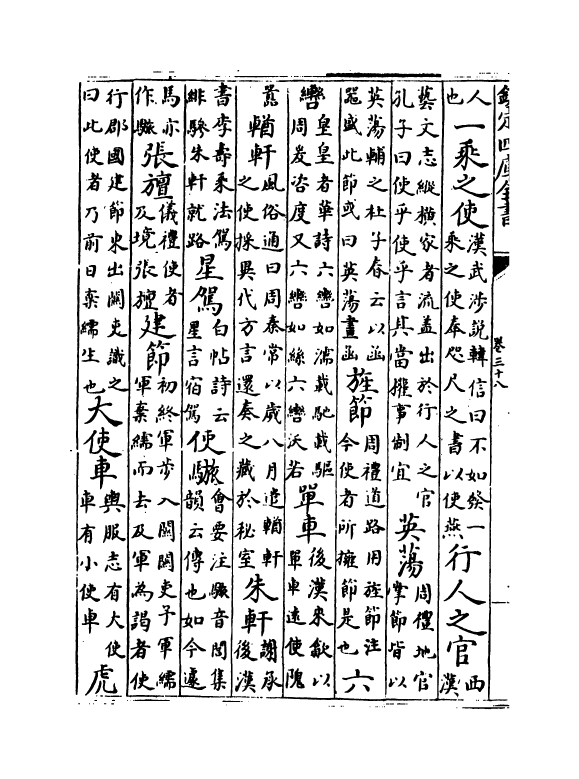 欽定四庫全書 卷三十八
人也 一乘之使 漢武涉説韓信曰不如發一乘之使奉咫尺之書以使燕 行人之官 西漢
藝文志縱横家者流盖出於行人之官孔子曰使乎使乎言其當權事制宜 英蕩 周禮地官掌節皆以
英蕩輔之杜子春云以函器盛此節或曰英蕩畫函 旌節 周禮道路用旌節注今使者所擁節是也 六
轡 皇皇者華詩六轡如濡載馳載驅周爰咨度又六轡如絲六轡沃若 單車 後漢來歙以單車逺使隗
囂 輶軒 風俗通曰周秦常以歲八月遣輶軒之使採異代方言還奏之藏於秘室 朱軒 謝承後漢
書李壽乘法駕緋驂朱軒就路 星駕 白帖詩云星言宿駕 使 會要注音閲集韻云傳也如今遽
馬亦作 張旜 儀禮使者及境張旜 建節 初終軍步入關關吏予軍繻軍棄繻而去及軍為謁者使
行郡國建節東出關吏識之曰此使者乃前日棄繻生也 大使車 輿服志有大使車有小使車 虎